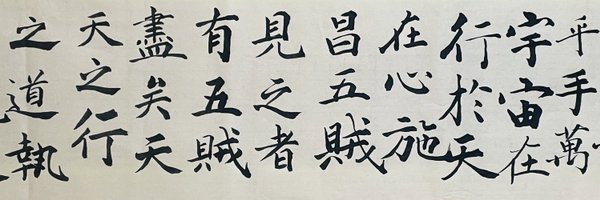 之道執
天之行
盡矣天
有五賊
見之者
昌五賊
在心施
行於天
宇宙在
乎手萬